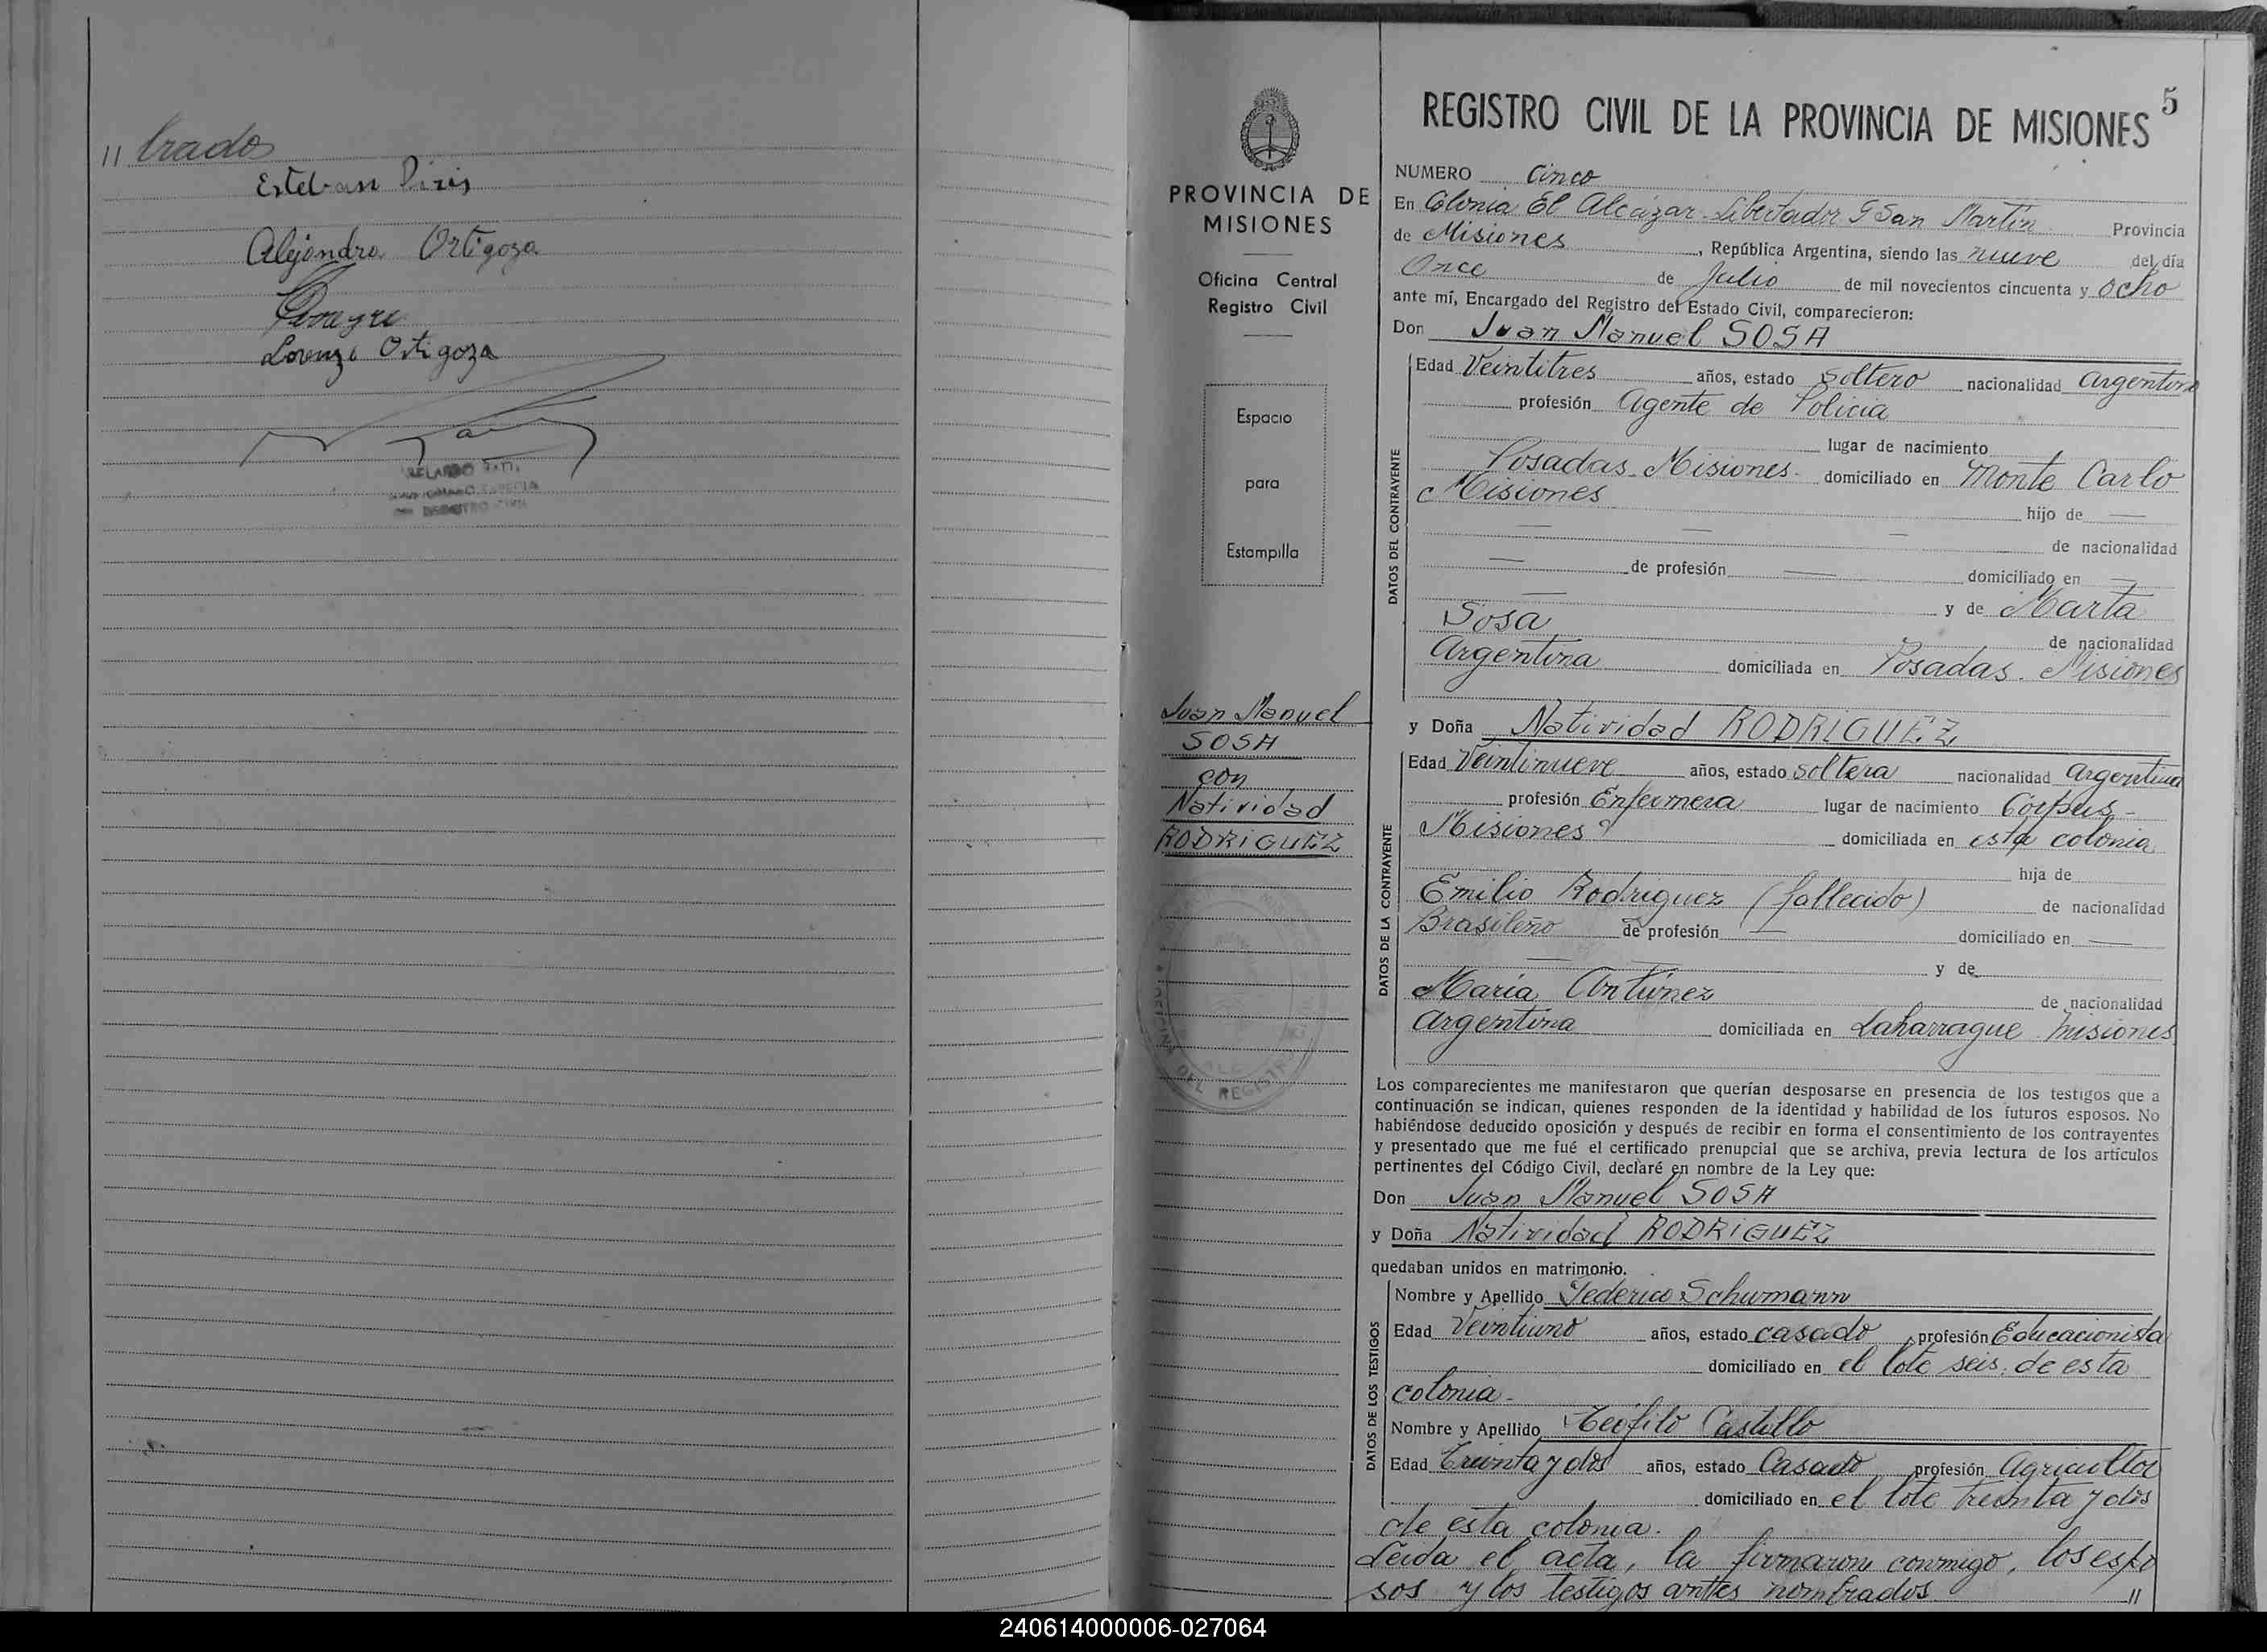 // brado
Esteban Piris
Alejandra Ortigoza
Lorenzo Ortigoza
5
REGISTRO CIVIL DE LA PROVINCIA DE MISIONES
PROVINCIA DE
MISIONES
Oficina Central
Registro Civil
Espacio
para
Estampilla
Juan Manuel
SOSA
con
Natividad
RODRIGUEZ
NUMERO cinco
En Colonia El Alcázar - Libertador G San Martín Provincia
de Misiones, República Argentina, siendo las nueve del día
Once de Julio de mil novecientos cincuenta y ocho
ante mí, Encargado del Registro del Estado Civil, comparecieron:
Don Juan Manuel SOSA
DATOS DEL CONTRAYENTE
Edad Veintitres años, estado soltero nacionalidad argentina
profesión Agente de Policia
lugar de nacimiento
Posadas - Misiones - domiciliado en Monte Carlo
Misiones
hijo de —
— — — de nacionalidad
— de profesión — domiciliado en —
— y de Marta
Sosa de nacionalidad
Argentina domiciliada en Posadas. Misiones
y Doña Natividad RODRIGUEZ
DATOS DE LA CONTRAYENTE
Edad Veintinueve años, estado soltera nacionalidad argentina
profesión Enfermera lugar de nacimiento Corpus -
Misiones domiciliada en esta colonia
hija de
Emilio Rodriguez (fallecido) de nacionalidad
Brasileño de profesión — domiciliado en —
— — y de
María Antúnez de nacionalidad
Argentina domiciliada en Laharrague Misiones
Los comparecientes me manifestaron que querían desposarse en presencia de los testigos que a
continuación se indican, quienes responden de la identidad y habilidad de los futuros esposos. No
habiéndose deducido oposición y después de recibir en forma el consentimiento de los contrayentes
y presentado que me fué el certificado prenupcial que se archiva, previa lectura de los artículos
pertinentes del Código Civil, declaré en nombre de la Ley que:
Don Juan Manuel SOSA
y Doña Natividad RODRIGUEZ
quedaban unidos en matrimonio.
DATOS DE LOS TESTIGOS
Nombre y Apellido Federico Schumann
Edad Veintiuno años, estado casado, profesión Educacionista
domiciliado en el lote seis de esta
colonia -
Nombre y Apellido Teófilo Castillo
Edad Treinta y dos años, estado Casado profesión Agricultor
domiciliado en el lote treinta y dos
de esta colonia.
Leída el acta, la firmaron conmigo, los espo
sos y los testigos antes nombrados //
240614000006-027064